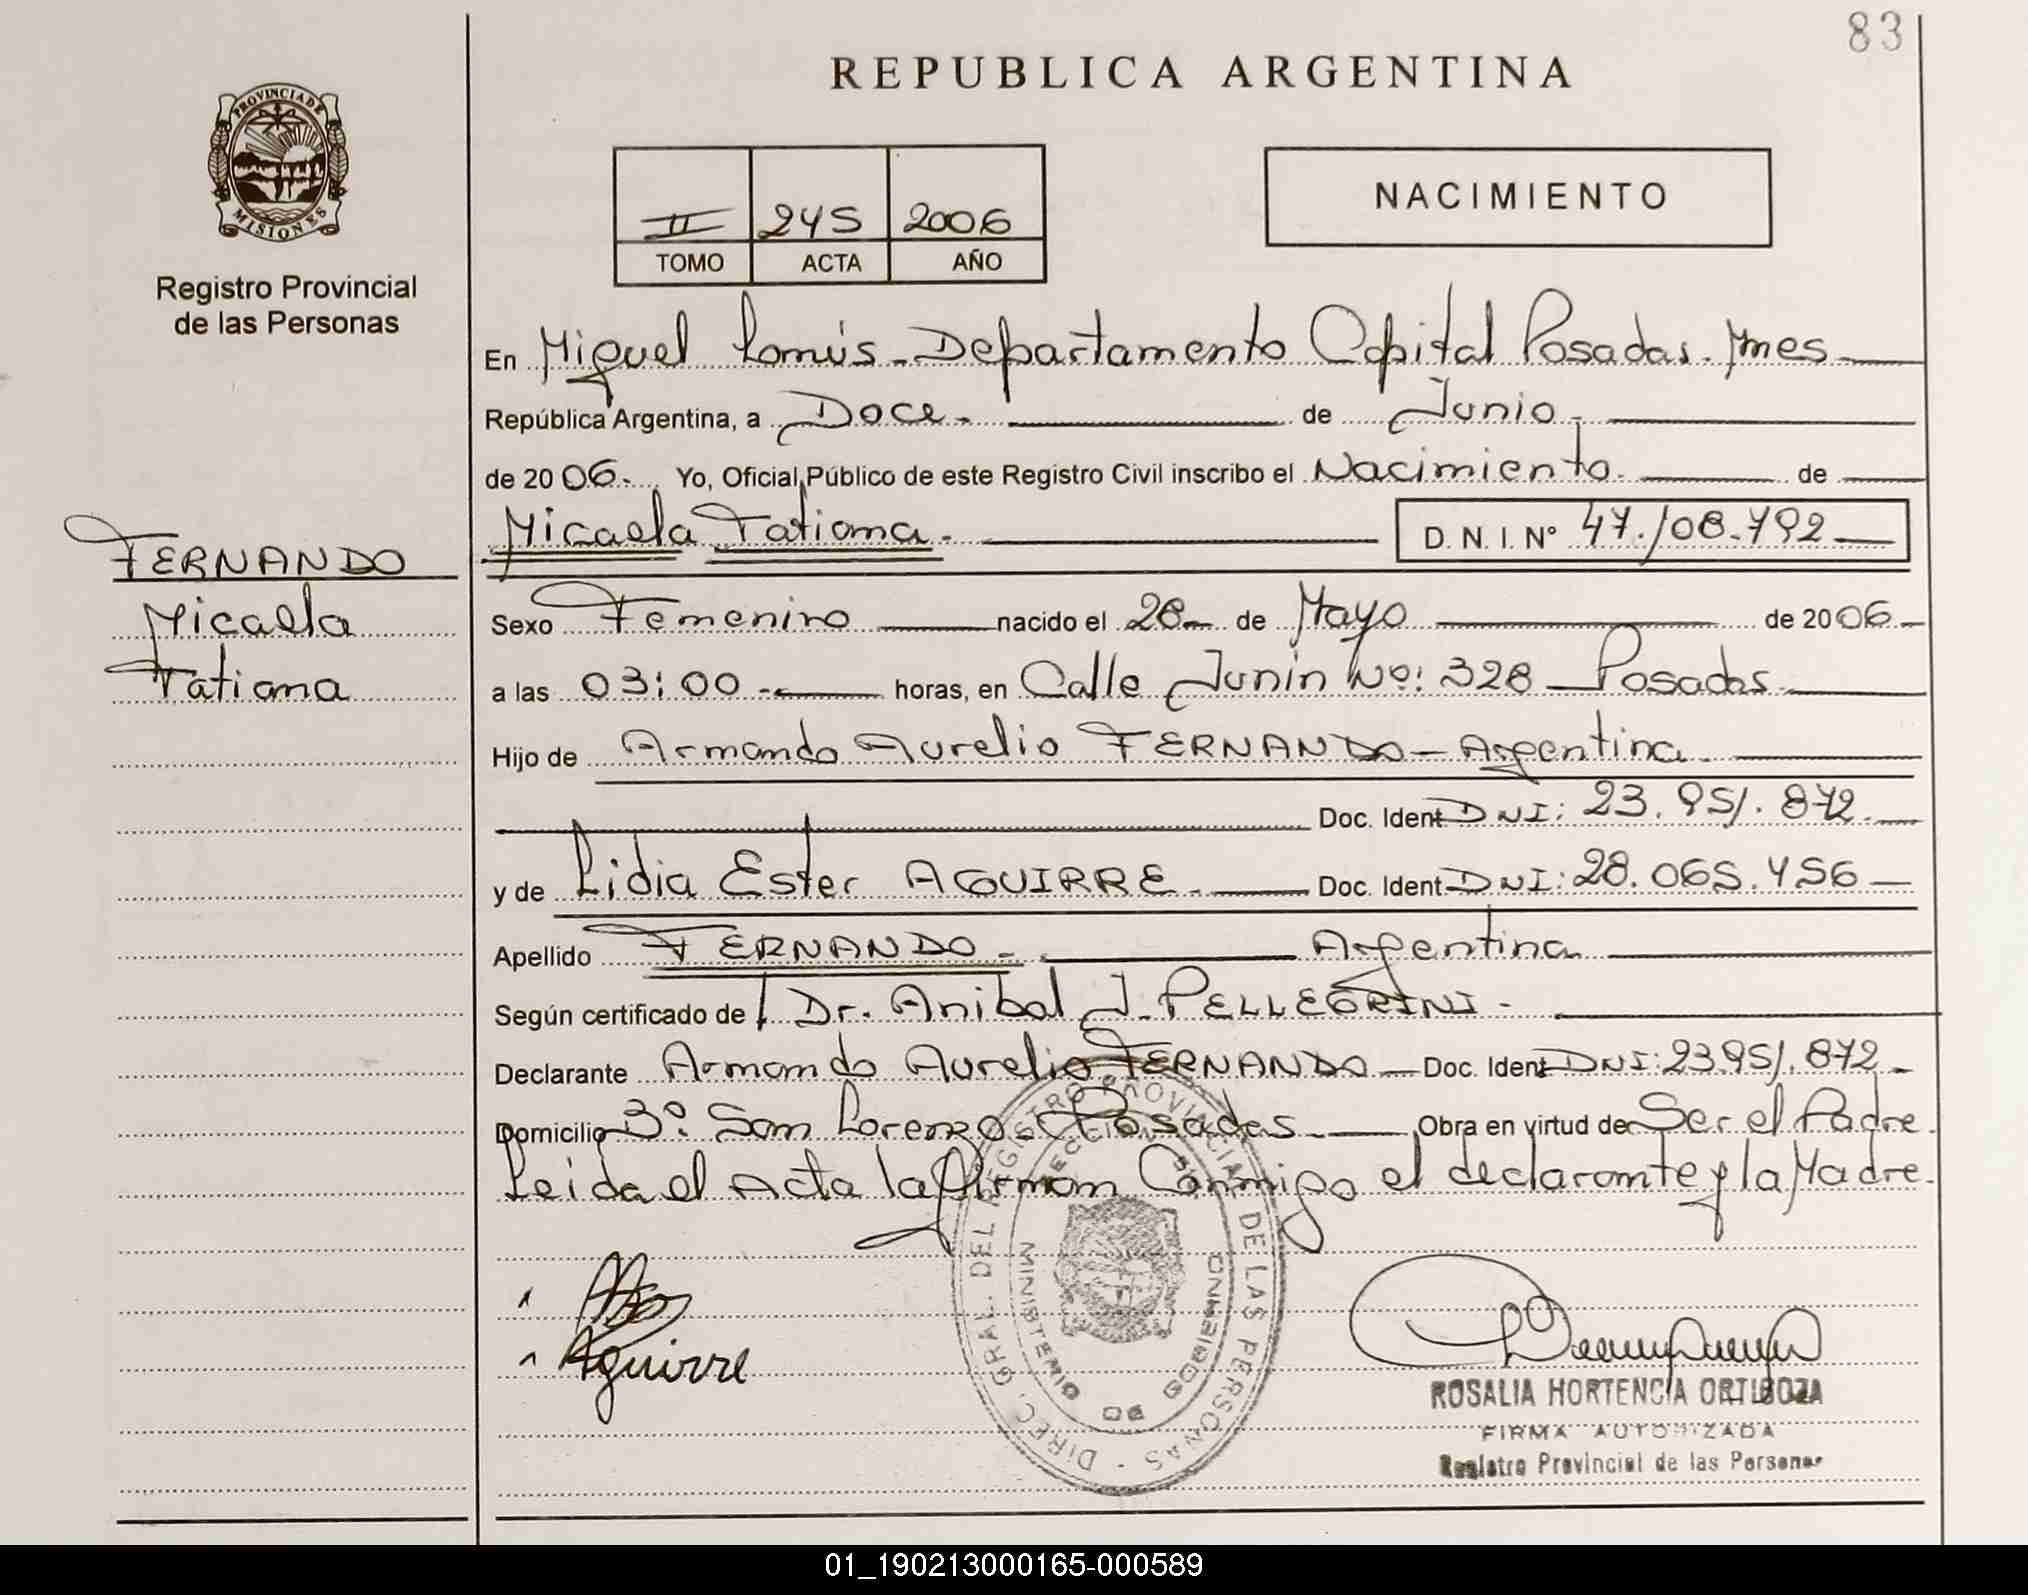 83
REPUBLICA ARGENTINA
PROVINCIA DE
MISIONES
Registro Provincial
de las Personas
II 245 2006
TOMO ACTA AÑO
NACIMIENTO
En Miguel Lanús - Departamento Capital Posadas. Mnes
República Argentina, a Doce. de Junio -
de 2006. Yo, Oficial Público de este Registro Civil inscribo el Nacimiento. de
Micaela Tatiana. D. N. I. Nº 47.108.792
FERNANDO
Micaela
Tatiana
Sexo Femenino nacido el 28 de Mayo de 2006
a las 03:00 horas, en Calle Junin No: 328 Posadas
Hijo de Armando Aurelio FERNANDO - Argentina
Doc. Ident DNI: 23.951.872
y de Lidia Ester AGUIRRE. Doc. Ident DNI: 28.065.456
Apellido FERNANDO - Argentina
Según certificado de Dr. Anibal J. PELLEGRINI -
Declarante Armando Aurelio FERNANDO - Doc. Ident DNI: 23.951.872
Domicilio 3º. San Lorenzo. Posadas Obra en virtud de Ser el Padre.
Leida el Acta la firman Conmigo el declarante y la Madre.
Aguirre
DIREC. GRAL. DEL REGISTRO PROVINCIAL DE LAS PERSONAS -
MINISTERIO DE GOBIERNO
ROSALIA HORTENCIA ORTIGOZA
FIRMA AUTORIZADA
Registro Provincial de las Personas
01_190213000165-000589